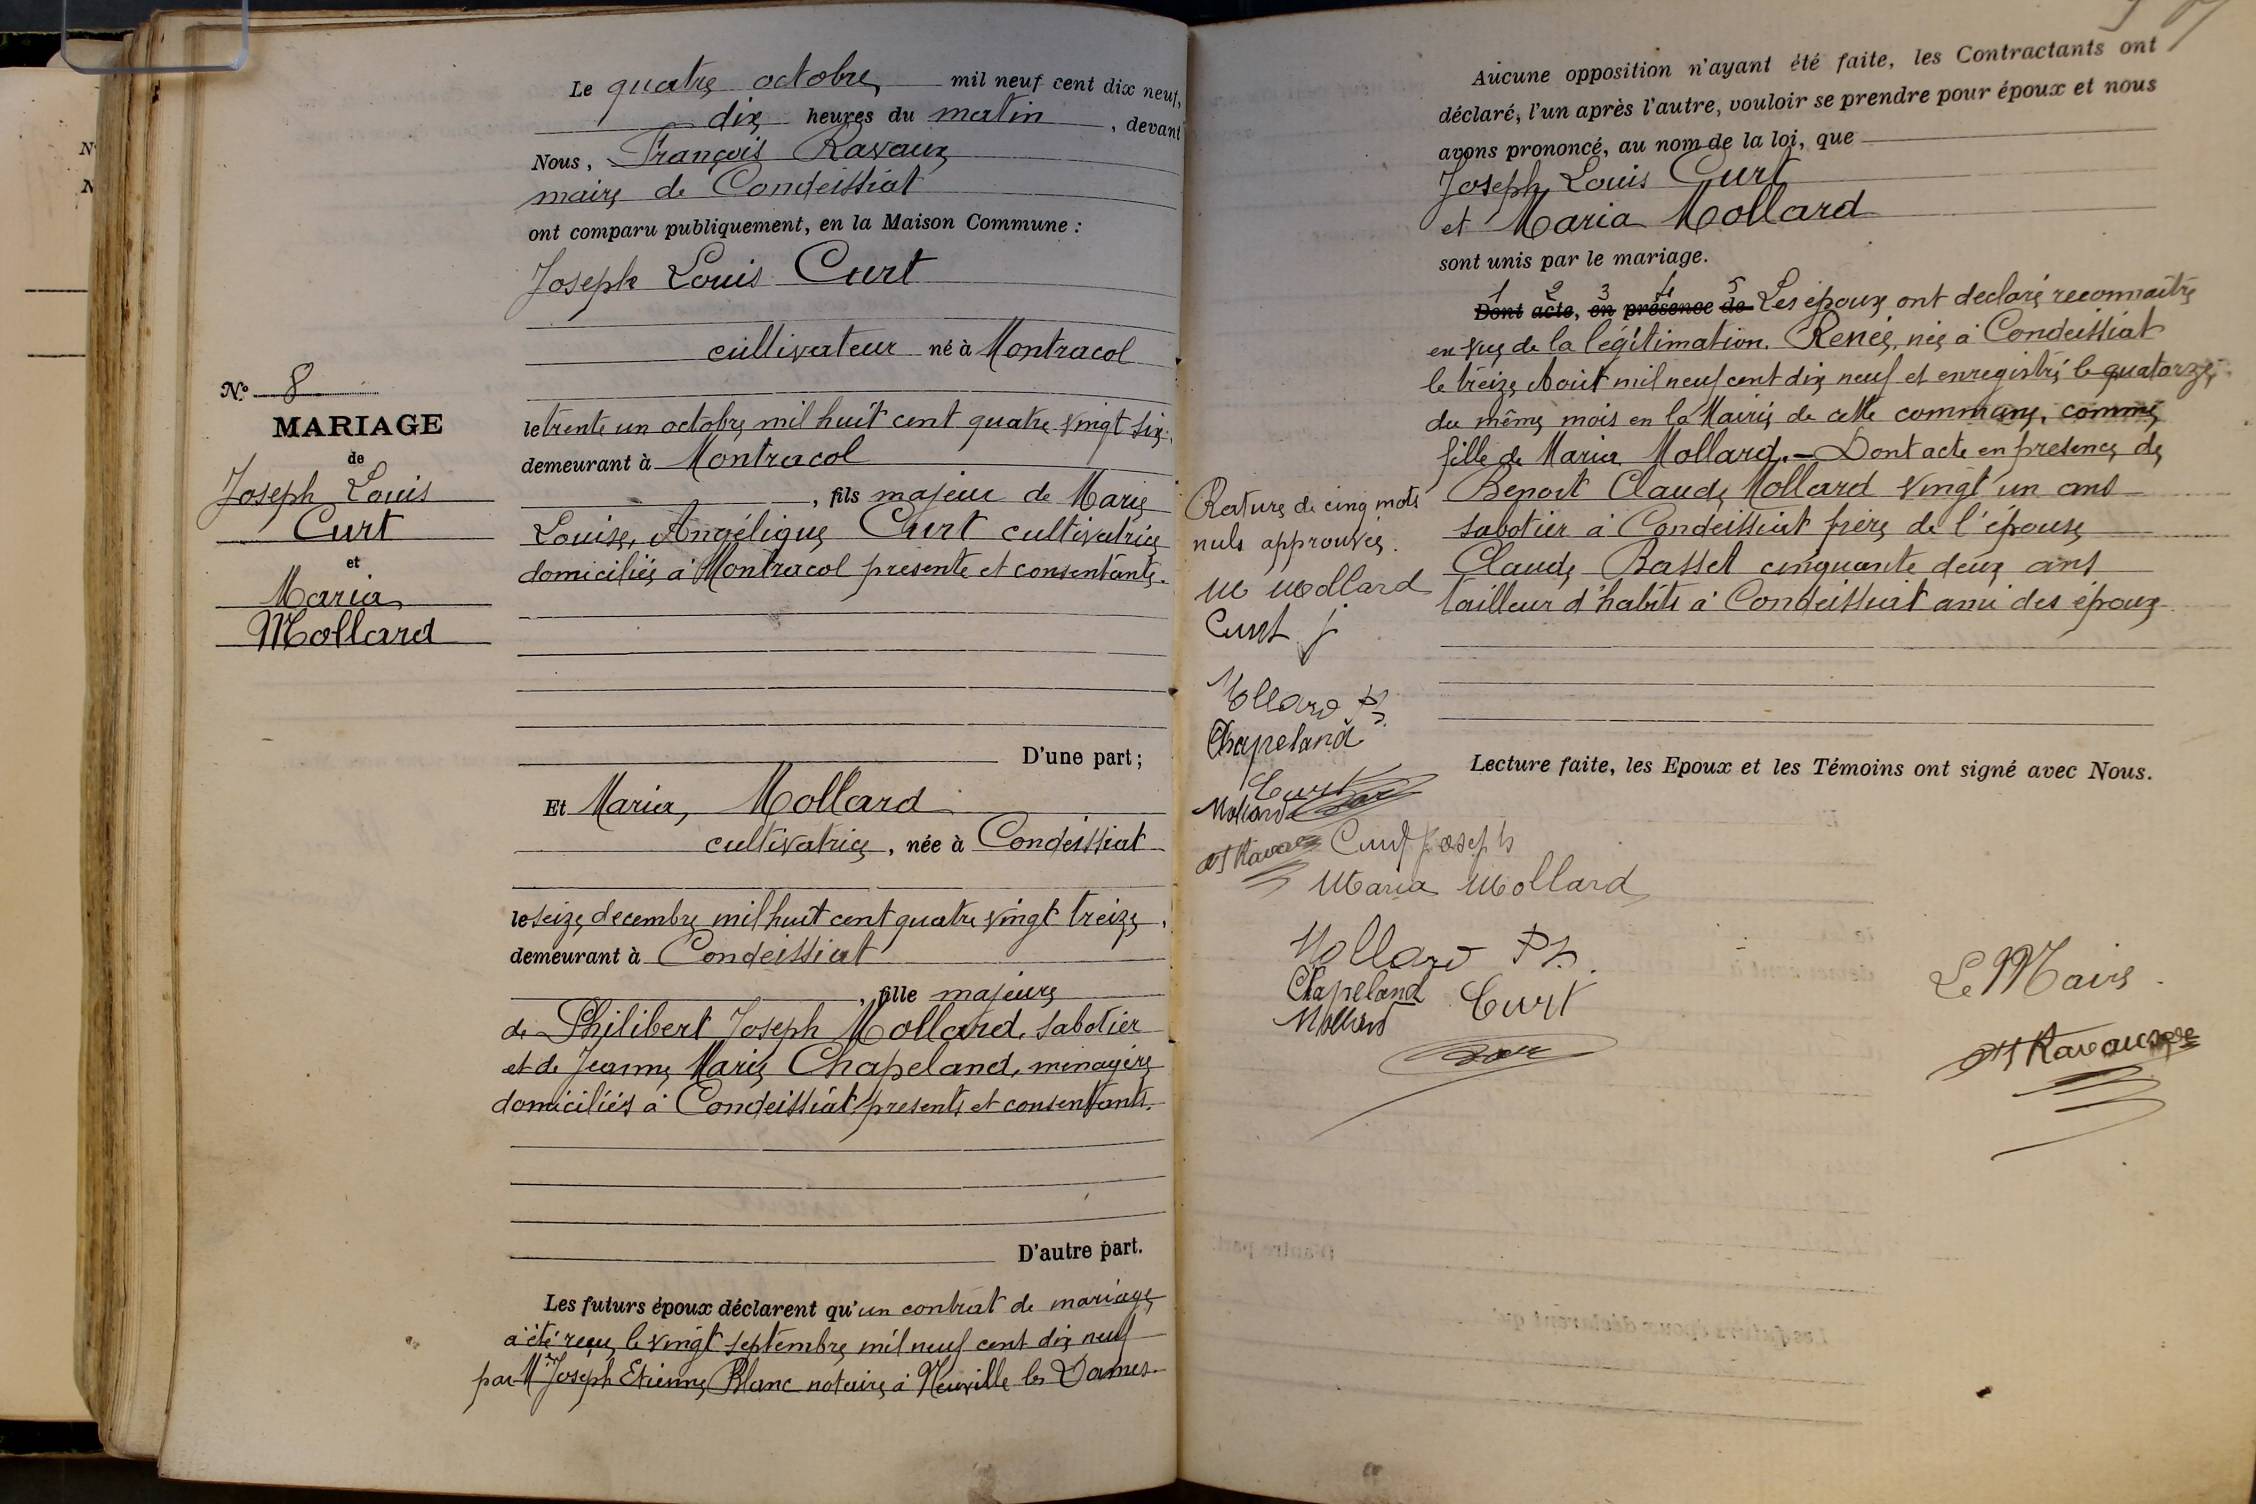 N° 8
MARIAGE
de
Joseph Louis
Curt
et
Maria
Mollard
Le quatre octobre mil neuf cent dix neuf,
dix heures du matin, devant
Nous, François Ravaux
maire de Condeissiat
ont comparu publiquement, en la Maison Commune :
Joseph Louis Curt
cultivateur né à Montracol
le trente un octobre mil huit cent quatre vingt six,
demeurant à Montracol
, fils majeur de Marie
Louise, Angélique Curt cultivatrice
domiciliée à Montracol présente et consentante.
D'une part ;
Et Maria, Mollard
cultivatrice, née à Condeissiat
le seize decembre mil huit cent quatre vingt treize,
demeurant à Condeissiat
, fille majeure
de Philibert Joseph Mollard, sabotier
et de Jeanne Marie Chapeland, ménagère
domiciliés à Condeissiat présents et consentants.
D'autre part.
Les futurs époux déclarent qu'un contrat de mariage
a été reçu le vingt septembre mil neuf cent dix neuf
par Me Joseph Etienne Blanc notaire à Neuville les Dames.
Aucune opposition n'ayant été faite, les Contractants ont
déclaré, l'un après l'autre, vouloir se prendre pour époux et nous
avons prononcé, au nom de la loi, que
Joseph Louis Curt
et Maria Mollard
sont unis par le mariage.
1 2 3 4 5
Dont acte, en présence de Les époux ont declaré reconnaître
en vue de la légitimation. Renée, née à Condeissiat
le treize Août mil neuf cent dix neuf et enregistré le quatorze
du même mois en la Mairie de cette commune, comme
fille de Maria Mollard. — Dont acte en présence de
Benoit Claude Mollard vingt un ans
sabotier à Condeissiat frère de l'épouse
Claude Basset cinquante deux ans
tailleur d'habits à Condeissiat ami des époux
Rature de cinq mots
nuls approuvée.
M Mollard
Curt J
Mollard Ph
Chapeland
Curt
Mollard
Ravaux
Lecture faite, les Epoux et les Témoins ont signé avec Nous.
Curt Joseph
Maria Mollard
Mollard Ph.
Chapeland Curt
Mollard
Le Maire
Ravaux